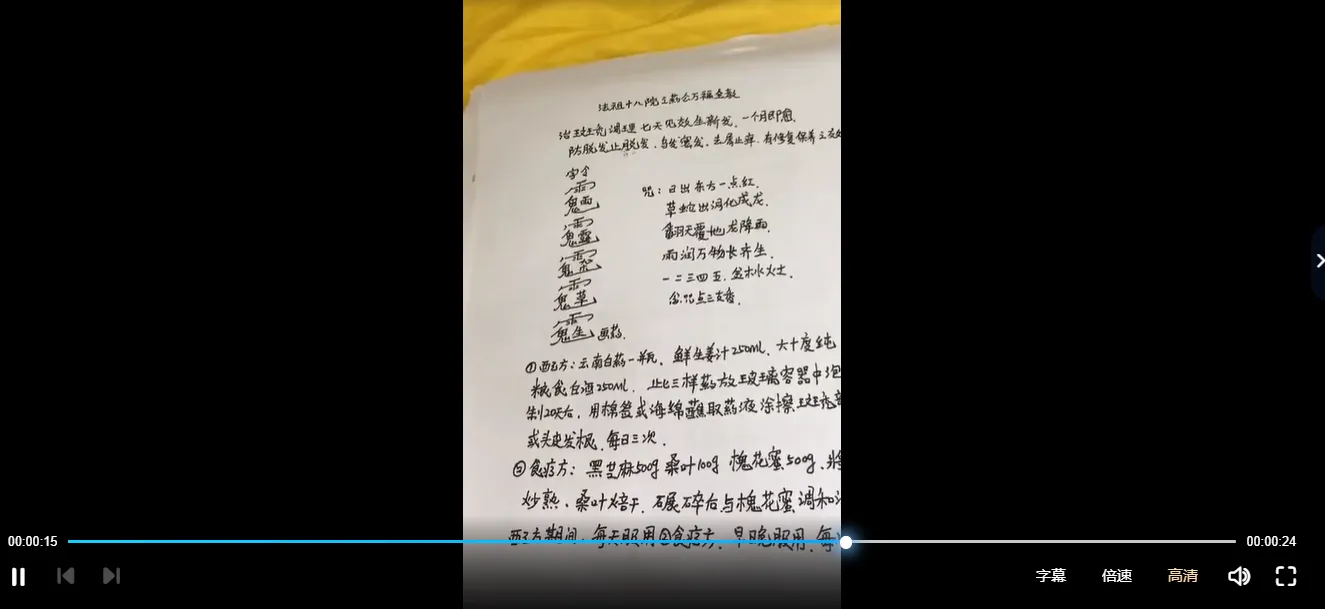 法祖十八院立药么万福金教
治斑秃调理七天见效生新发，一个月即愈，
防脱发止脱发，乌发密发，去屑止痒，有修复保养之
字令
咒：日出东方一点红，
草蛇出洞化成龙，
翻天覆地龙降雨，
雨润万物长齐生，
一二三四五，金木水火土，
念咒点三支香。
画药
①西医方：云南白药一瓶，鲜生姜汁250ml，六十度纯
粮食白酒250ml，此三样药放玻璃容器中泡
制20天后，用棉签或海绵蘸取药液涂擦斑秃
或头皮发根，每日三次。
②食疗方：黑芝麻500g 桑叶100g 槐花蜜500g，将
炒熟，桑叶焙干，碾碎后与槐花蜜调和
方期间，每天服用②食疗方，早晚服用，每
00:00:15
00:00:24
字幕
倍速
高清